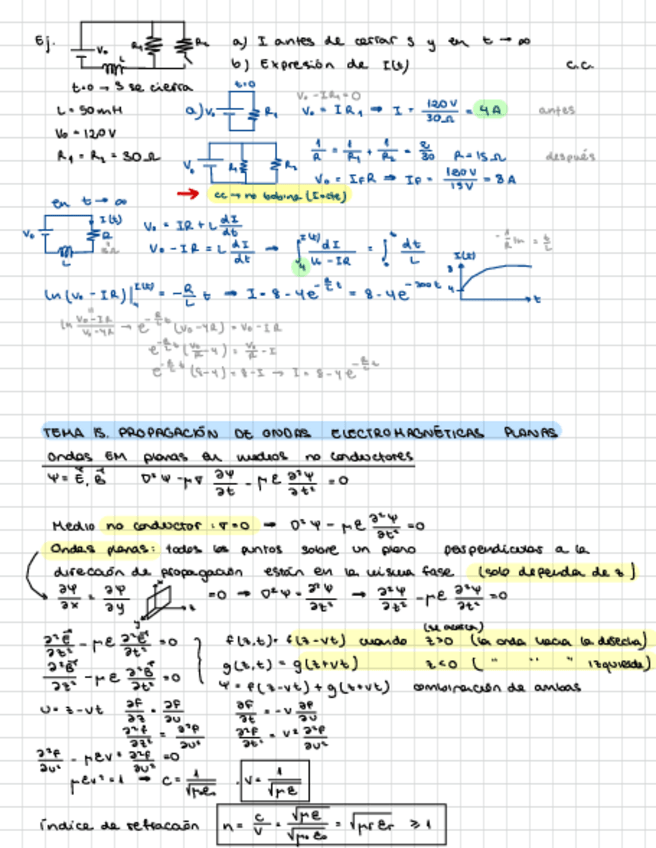 Ej. V₀ R₁ R₂ L a) I antes de cerrar S y en t → ∞
b) Expresión de I(t) c.c.
t=0 → S se cierra
L = 50mH
V₀ = 120V
R₁ = R₂ = 30Ω
t=0
a) V₀ R₁
V₀ - IR₁ = 0
V₀ = IR₁ ⇒ I = 120V/30Ω = 4A antes
V₀ R₁ R₂ 1/R = 1/R₁ + 1/R₂ = 2/30 R = 15Ω después
V₀ = I_f R ⇒ I_f = 180V/15V = 8A
→ cc → no bobina (I=cte)
en t → ∞
V₀ I(t) R L
V₀ = IR + L dI/dt
V₀ - IR = L dI/dt → ∫₄^I(t) dI/(V₀ - IR) = ∫₀^t dt/L
-1/R ln = t/L
I(t) 8 4 t
ln(V₀ - IR)|₄^I(t) = -R/L t ⇒ I = 8 - 4e^(-R/L t) = 8 - 4e^(-300t)
ln (V₀-IR)/(V₀-4R) → e^(-R/L t) (V₀-4R) = V₀ - IR
e^(-R/L t) (V₀/R - 4) = V₀/R - I
e^(-R/L t) (8-4) = 8 - I → I = 8 - 4e^(-R/L t)
TEMA 15. PROPAGACIÓN DE ONDAS ELECTROMAGNÉTICAS PLANAS
Ondas EM planas en medios no conductores
Ψ = E⃗, B⃗ ∇²Ψ - μσ ∂Ψ/∂t - με ∂²Ψ/∂t² = 0
Medio no conductor: σ=0 → ∇²Ψ - με ∂²Ψ/∂t² = 0
Ondas planas: todos los puntos sobre un plano perpendicular a la
dirección de propagación están en la misma fase (solo depender de z)
∂Ψ/∂x = ∂Ψ/∂y = 0 → ∇²Ψ = ∂²Ψ/∂z² → ∂²Ψ/∂z² - με ∂²Ψ/∂t² = 0
∂²E⃗/∂z² - με ∂²E⃗/∂t² = 0
∂²B⃗/∂z² - με ∂²B⃗/∂t² = 0
f(z,t) = f(z-vt) cuando z>0 (la onda hacia la derecha)
g(z,t) = g(z+vt) z<0 ( " " " izquierda)
Ψ = f(z-vt) + g(z+vt) combinación de ambas
u = z-vt ∂f/∂z = ∂f/∂u ∂f/∂t = -v ∂f/∂u
∂²f/∂z² = ∂²f/∂u² ∂²f/∂t² = v² ∂²f/∂u²
∂²f/∂u² - μεv² ∂²f/∂u² = 0
μεv² = 1 → c = 1/√(μ₀ε₀) , v = 1/√(με)
índice de refracción n = c/v = √(με)/√(μ₀ε₀) = √(μrεr) ≥ 1